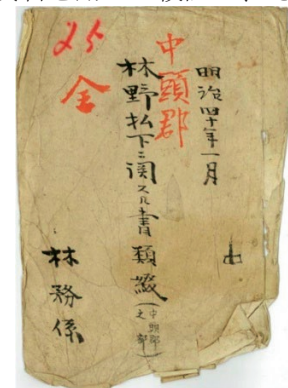 明治四十年一月
中頭郡
林野払下ニ関スル書類綴(中頭郡之部)
林務係
25
全